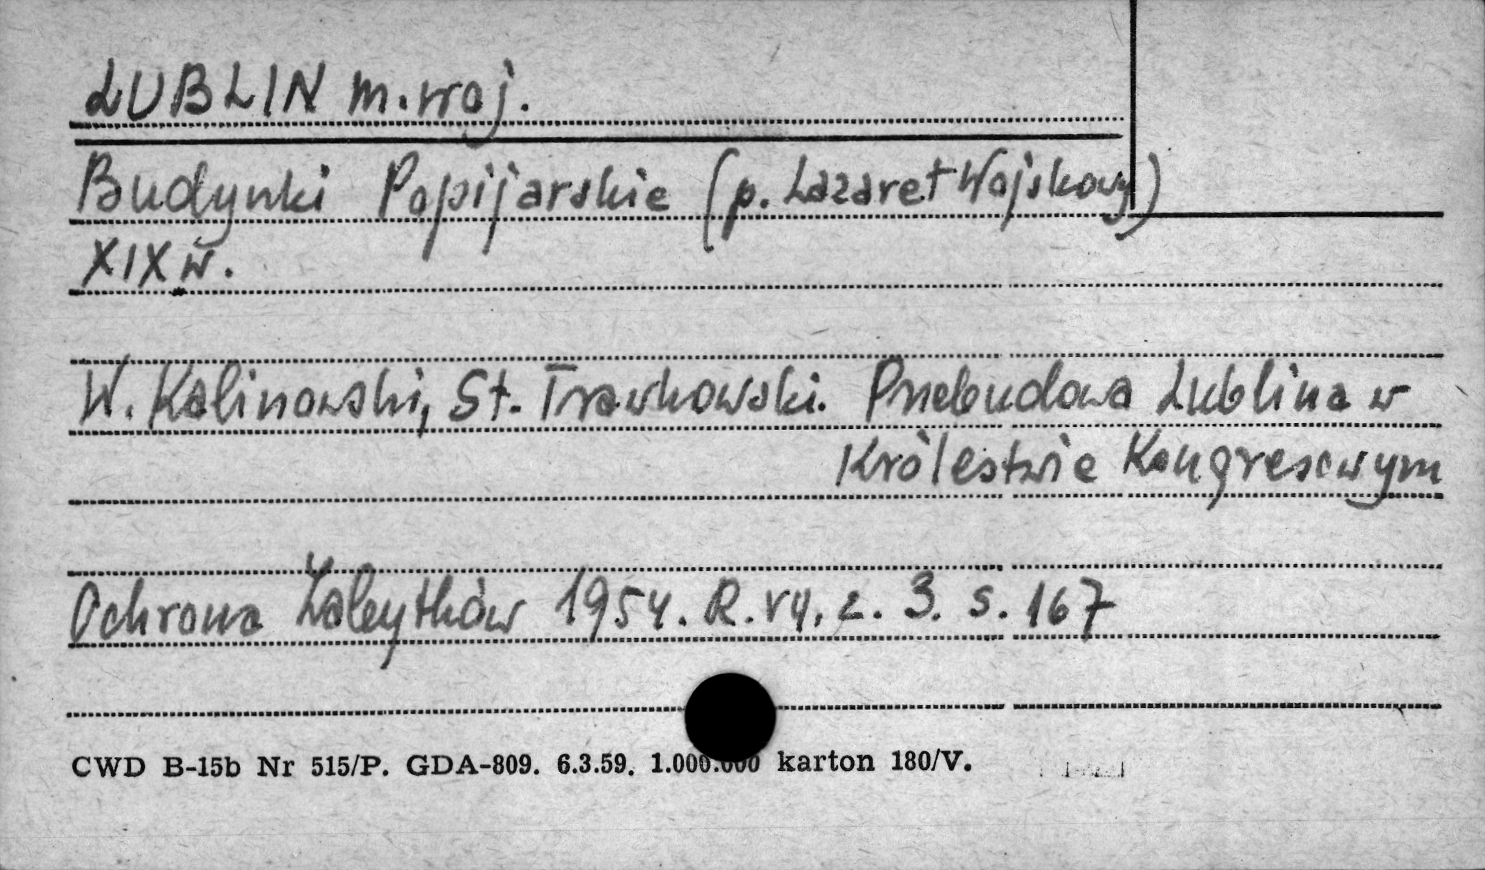 LUBLIN m. woj.
Budynki Popijarskie (p. Lazaret Wojskowy)
XIX w.
W. Kalinowski, St. Trawkowski. Przebudowa Lublina w
Królestwie Kongresowym
Ochrona Zabytków 1954. R. VII, z. 3. s. 167
CWD B-15b Nr 515/P. GDA-809. 6.3.59. 1.000.000 karton 180/V.